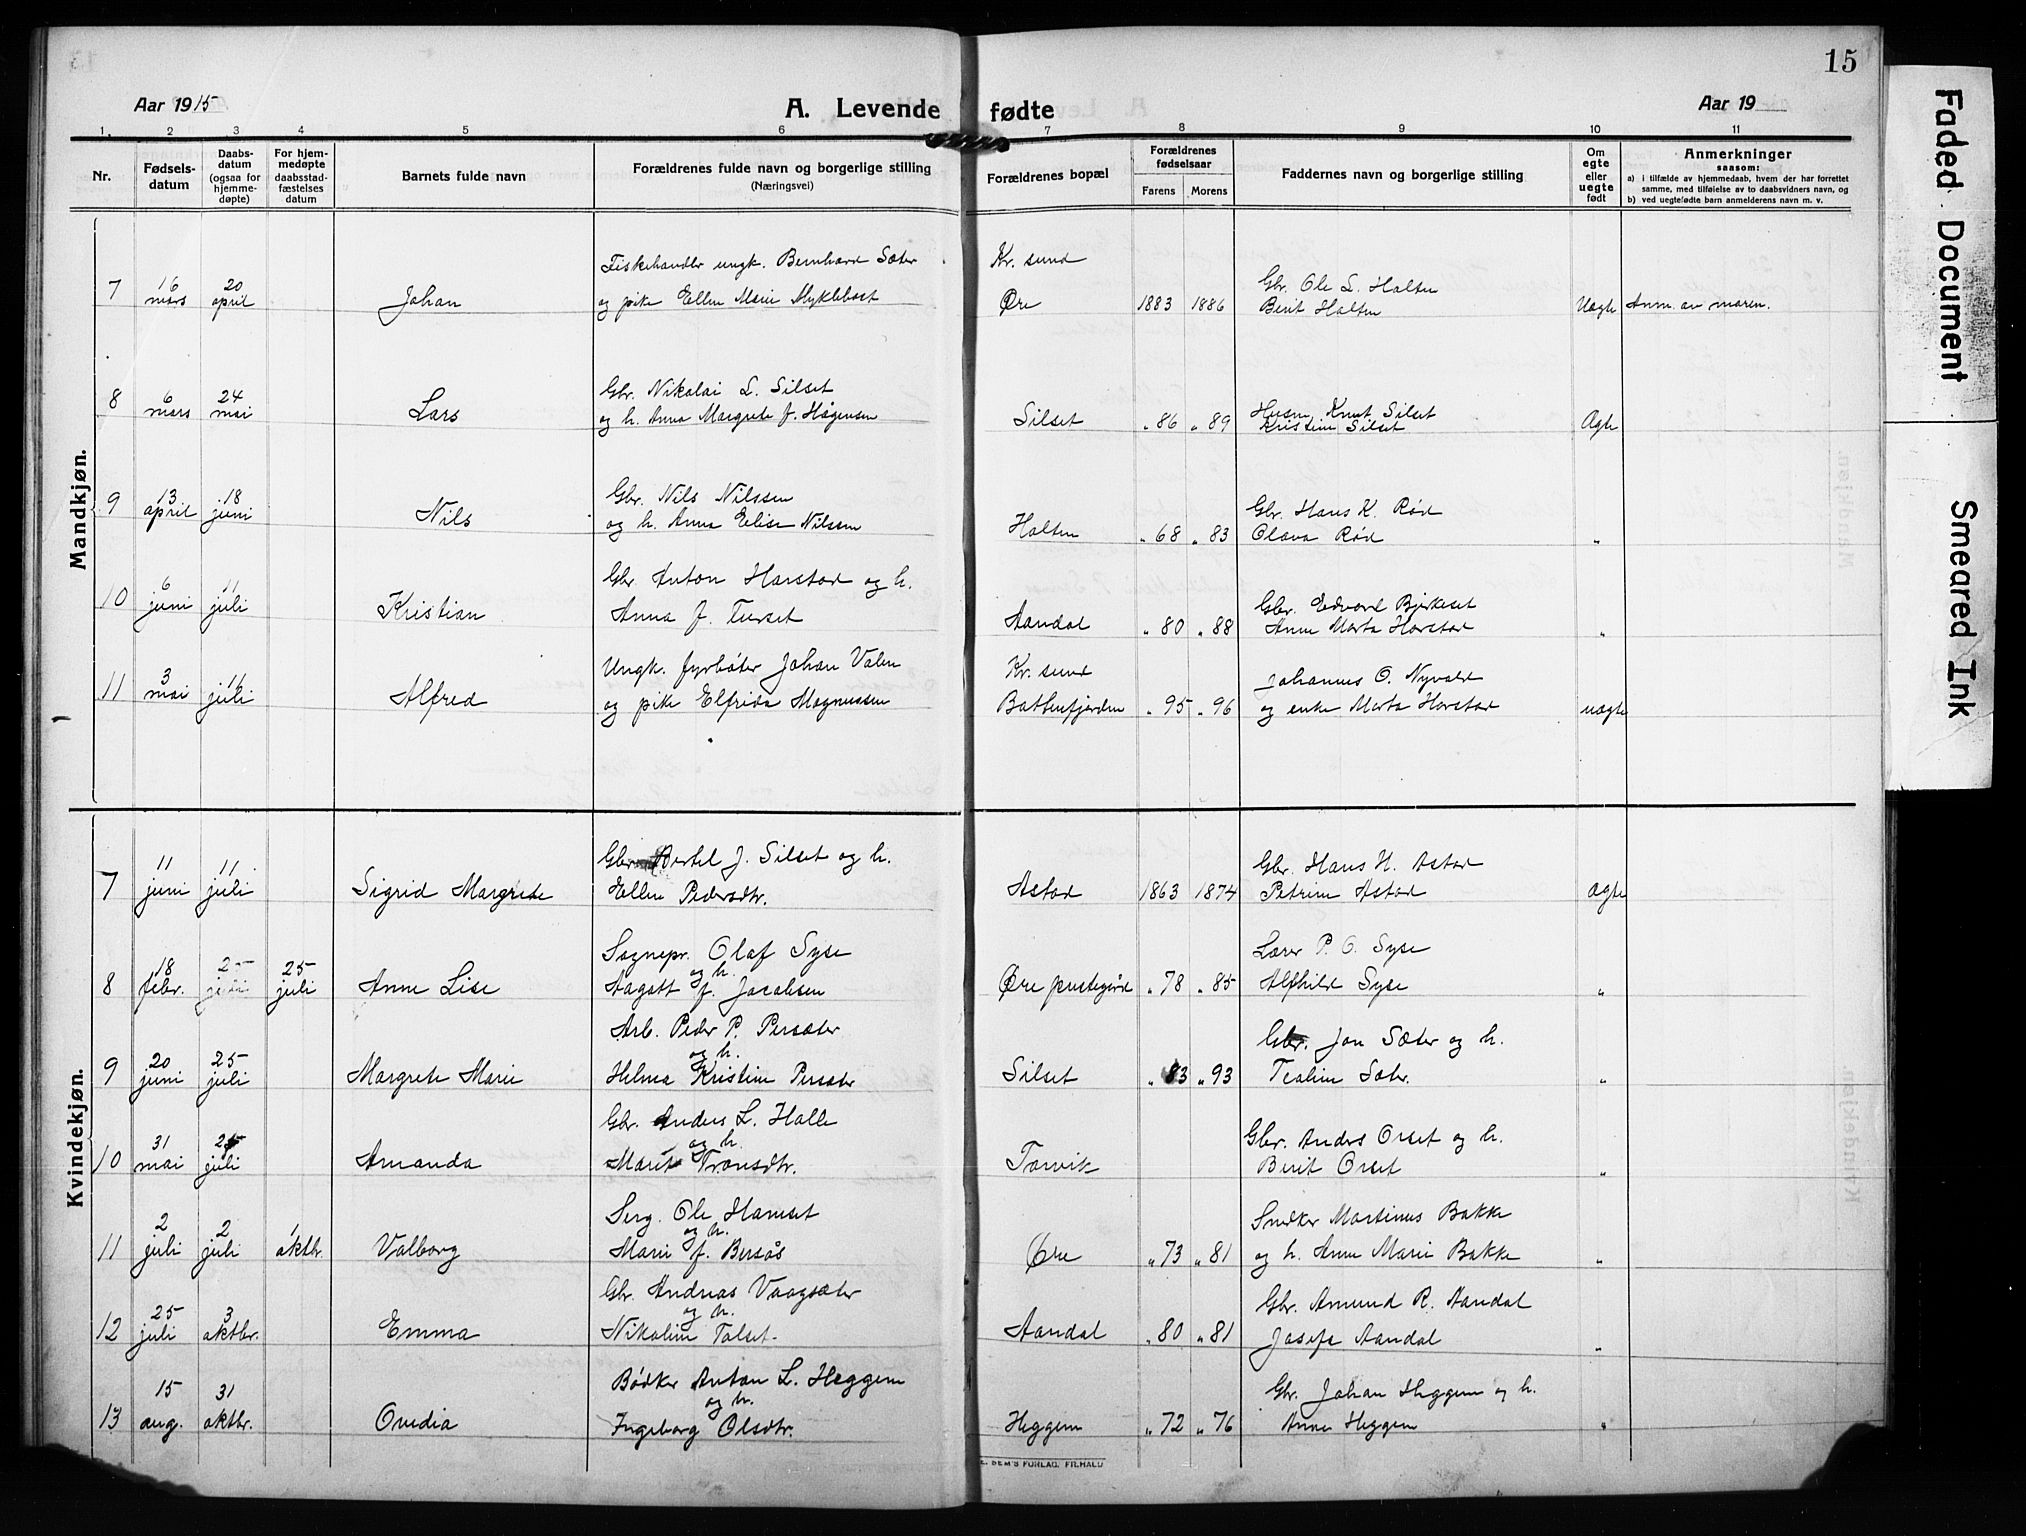 15
Aar 1915
A. Levende fødte
Aar 19
1. 2 3 4 5 6 7 8 9 10 11
Nr.
Fødsels-
datum
Daabs-
datum
(ogsaa for
hjemme-
døpte)
For hjem-
medøpte
daabsstad-
fæstelses
datum
Barnets fulde navn
Forældrenes fulde navn og borgerlige stilling
(Næringsvei)
Forældrenes bopæl
Forældrenes
fødselsaar
Farens Morens
Faddernes navn og borgerlige stilling
Om
egte
eller
uegte
født
Anmerkninger
saasom:
a) i tilfælde av hjemmedaab, hvem der har forrettet
samme, med tilføielse av to daabsvidners navn, og
b) ved uegtefødte barn anmelderens navn m. v.
Mandkjøn.
Fiskehandler ungk. Bernhard Sæter Kr. sund
16 20 Gbr. Ole L. Halten
7 mars april Johan og pike Ellen Marie Myklebost Øre 1883 1886 Berit Halten Uægte Anm. av moren.
6 24 Gbr. Nikolai L. Silset
8 mars mai Lars og h. Anna Margrete f. Høgensen Silset " 86 " 89 Husm. Knut Silset
Kristine Silset Ægte
13 18 Gbr. Nils Nilssen Gbr. Hans K. Rød
9 april juni Nils og h. Anna Elise Nilssen Halten " 68 " 83 Olava Rød "
6 11 Gbr. Anton Harstad og h. Gbr. Edvard Bjerkeset
10 juni juli Kristian Anna f. Turset Aandal " 80 " 88 Anne Marta Harstad "
3 11 Ungk. fyrbøter Johan Valen Kr. sund Johannes O. Nyvald
11 mai juli Alfred og pike Elfrida Magnussen Batnfjorden " 95 " 96 og enke Marta Harstad uægte
Kvindekjøn.
11 11 Gbr. Bertel J. Silset og h. Gbr. Hans H. Astad
7 juni juli Sigrid Margrete Ellen Pedersdtr. Astad 1863 1874 Petrine Astad ægte
18 25 25 Sognepr. Olaf Syse og h. Lærer P. O. Syse
8 febr. juli juli Anne Lise Aagott f. Jacobsen Øre prestegård " 78 " 85 Alfhild Syse "
20 25 Arb. Peder P. Persæter og h. Gbr. Jon Sæter og h.
9 juni juli Margrete Marie Helma Kristine Persæter Silset " 83 " 93 Sæter. "
31 25 Gbr. Anders L. Halle og h. Gbr. Anders Orset og h.
10 mai juli Amanda Marit Tronsdtr. Torvik Berit Orset "
2 2 Serg. Ole Hanset og h. Snedker Martinus Bakke
11 juli juli oktbr. Valborg Marie f. Bersås Øre " 73 " 81 og h. Anne Marie Bakke "
25 3 Gbr. Andreas Vaagsæter og h. Gbr. Amund R. Aandal
12 juli oktbr. Emma Nikoline Talset Aandal " 80 " 81 Josefa Aandal "
15 31 Bødker Anton L. Heggem og h. Gbr. Johan Heggem og h.
13 aug. oktbr. Ovidia Ingeborg Olsdtr. Heggem " 72 " 76 Anne Heggem "
E. SEM'S FORLAG. FR.HALD
Faded Document
Smeared Ink